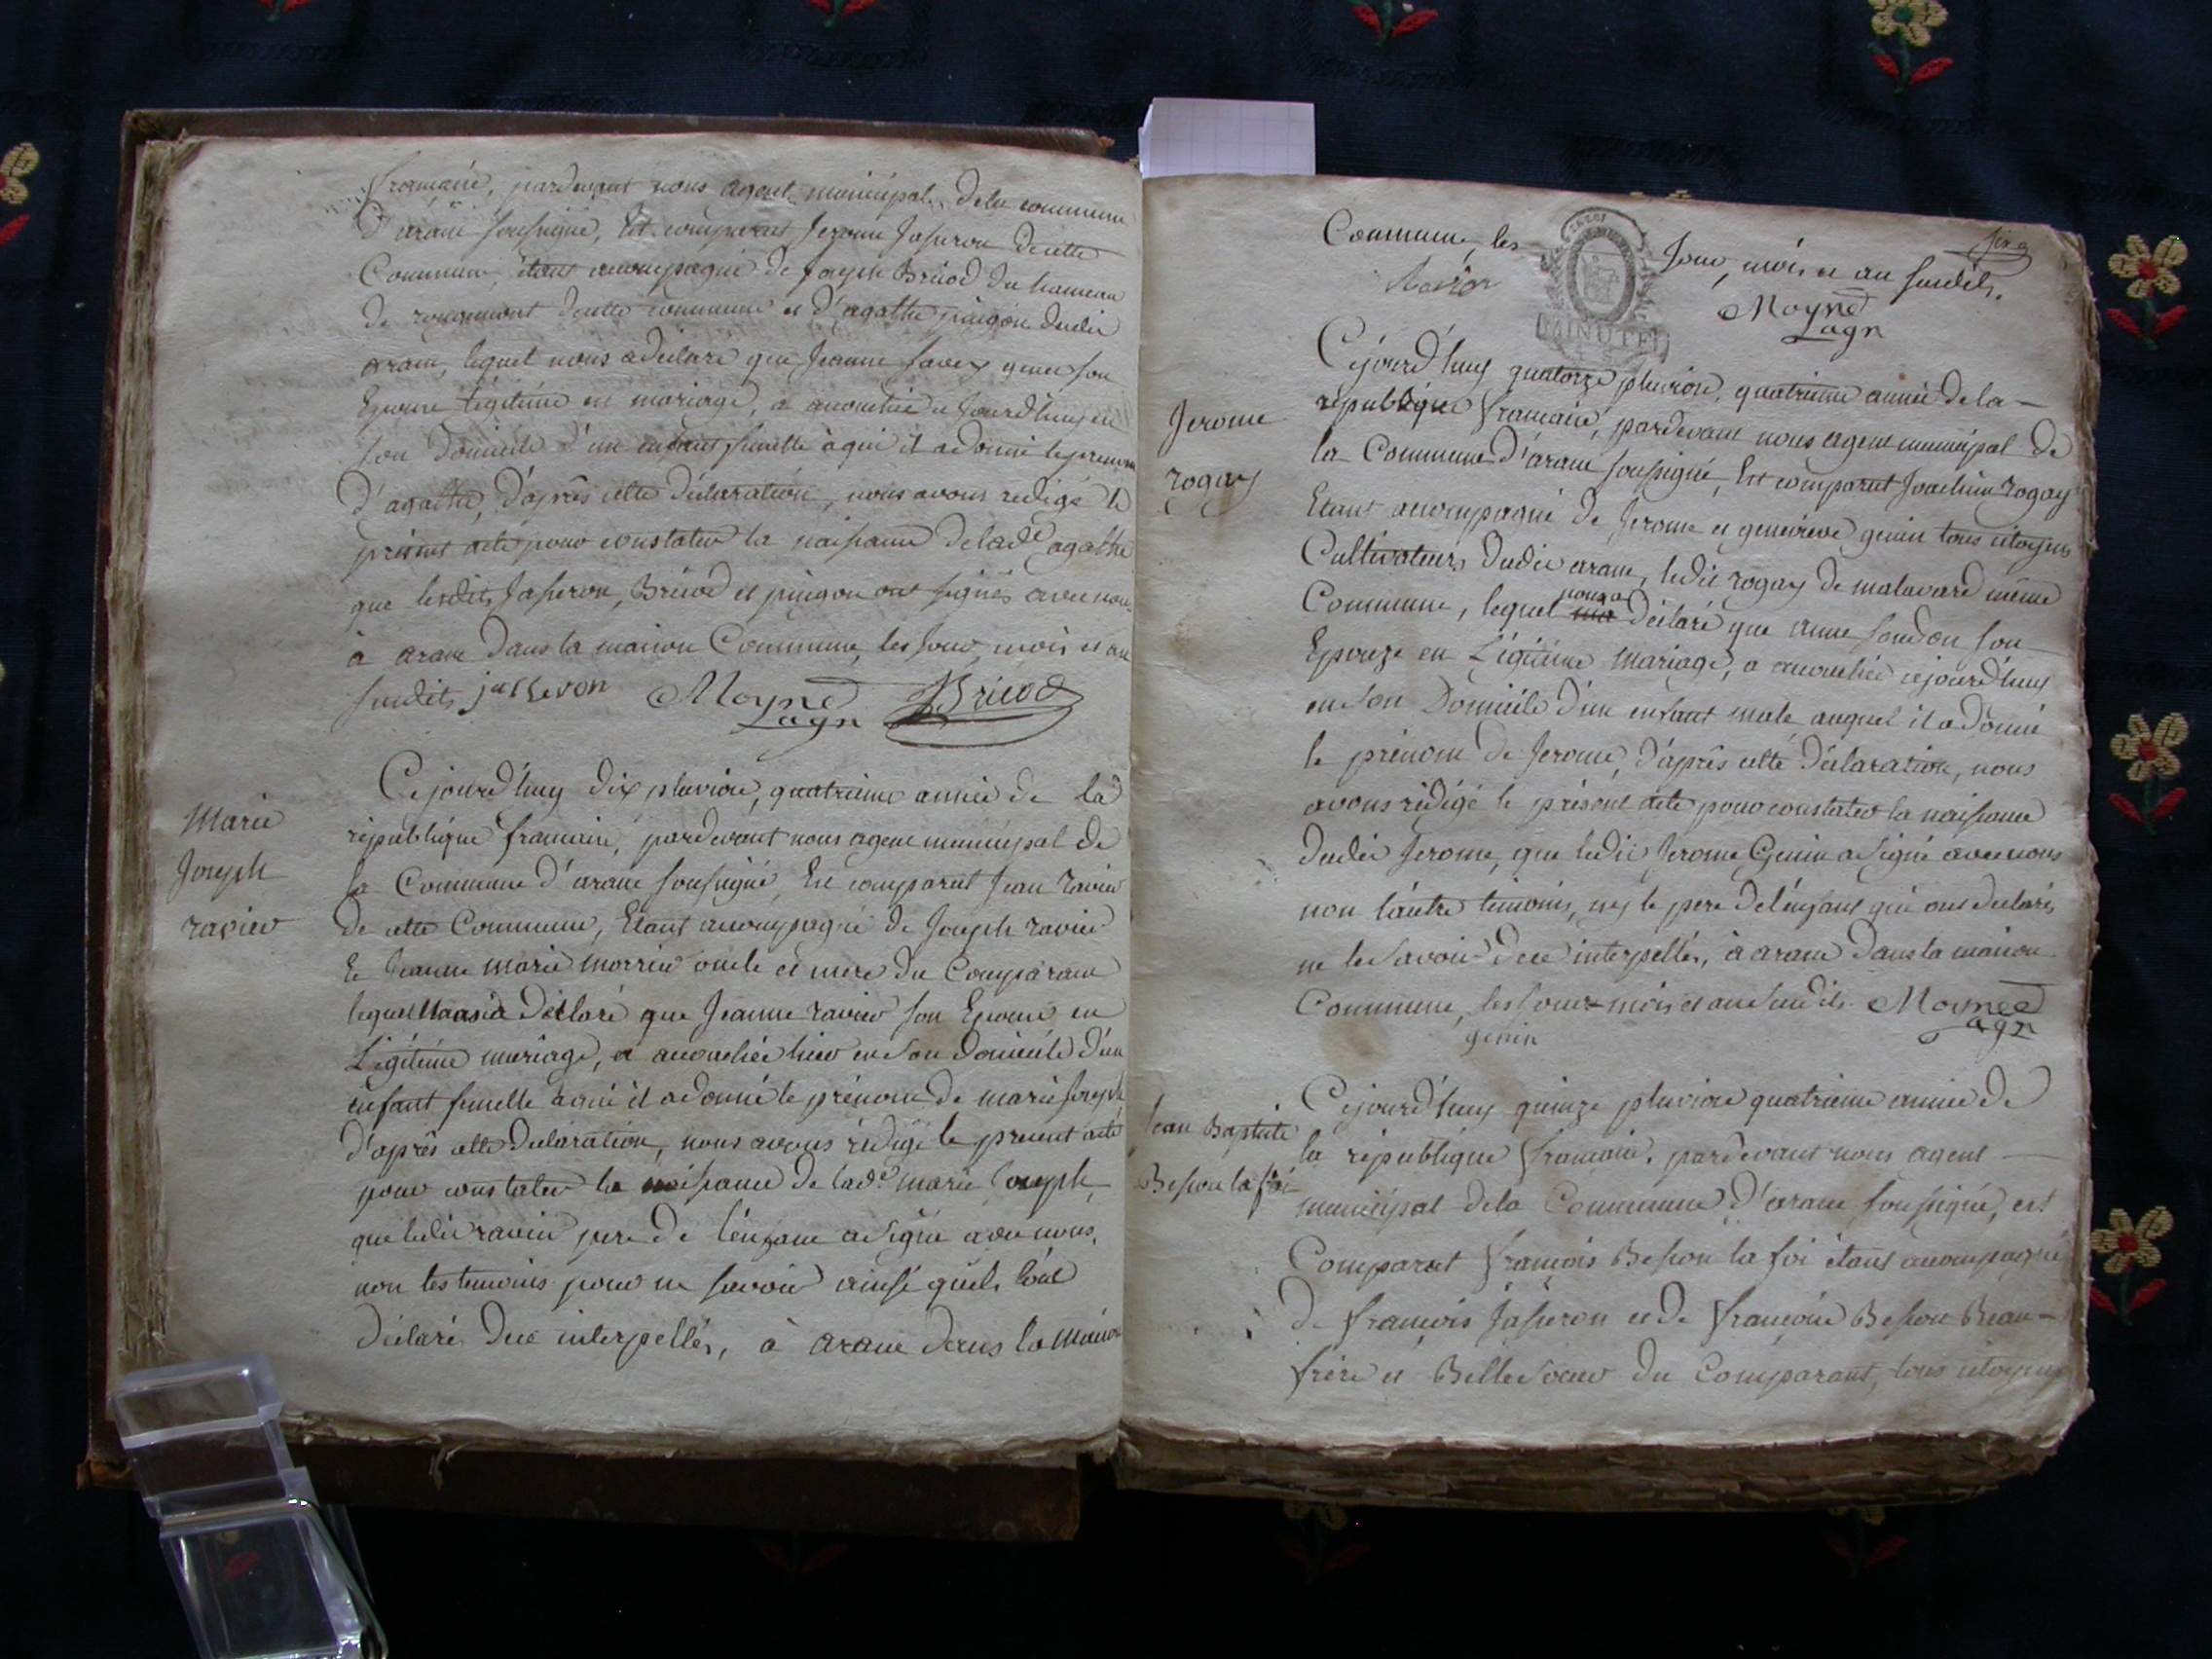 française, pardevant nous agent municipal dela commune
d'arane soussigné, Est comparut Jerome Jasseron decette
Commune, étant accompagné de Joseph Bricod du hameau
de rougemont decette commune et d'agathe pingon dudit
arane, lequel nous a déclaré que Jeanne
Epouse légitime en mariage, a accouchée ce Jourd'huy en
son Domicile d'un enfant femelle à qui il a donné le prenom
d'agathe, d'après cette déclaration, nous avons redigé le
présent acte pour constater la naissance de lade agathe
que lesdits Jasseron, Bricod et pingon ont signés avec nous
à arane dans la maison Commune, les Jour, mois et an
susdits jasseron Moyne Bricod
agn
Marie
Joseph
ravier
Cejourd'huy dix pluviose, quatrieme année de la
république francaise, pardevant nous agent municipal de
la Commune d'arane soussigné, Est comparut Jean ravier
de cette Commune, Etant accompagné de Joseph ravier
Et Jeanne marie morrier oncle et mere du Comparant
lequel nous a Déclaré que Jeanne ravier son Epouse en
Légitime mariage, a accouchée hier en son domicile d'un
enfant femelle à qui il a donné le prénom de marie Joseph
d'après cette Déclaration, nous avons rédigé le present acte
pour constater la naissance de lade marie Joseph,
que ledit ravier pere de l'enfant a signé avec nous,
non les temoins pour ne savoir ainsi qu'ils l'ont
déclaré Dece interpellés, à arane dans la maison
Commune, les Jour, mois et an susdits.
ravier Moyne
agn
MINUTE
Jerome
rogay
Cejourd'huy quatorze pluviose, quatrieme année dela
république française, pardevant nous agent municipal de
la Commune d'arane soussigné, Est comparut Joachim rogay
Etant accompagné de Jerome et genevieve genin tous citoyens
Cultivateurs dudit arane, ledit rogay de malavard même
Commune, lequel nous a Déclaré que anne son
Epouze en Légitime Mariage, a accouchée cejourd'huy
en son Domicile d'un enfant male auquel il a donné
le prénom de Jerome, d'après cette déclaration, nous
avons rédigé le présent acte pour constater la naissance
dudit Jerome, que ledit Jerome Genin a signé avec nous
non l'autre temoins, ny le pere de l'enfant qui ont declarés
ne le savoir Dece interpellés, à arane dans la maison
Commune, les Jour mois et an susdits. Moyne
genin agn
Jean Baptiste
Besson la foi
Cejourd'huy quinze pluviose quatrieme année de
la république francaise, pardevant nous agent
municipal dela Commune d'arane soussigné, est
Comparut françois Besson la foi étant accompagné
de francois Jasseron et de françoise Besson Beau-
frère et Belle soeur du Comparant, tous citoyens